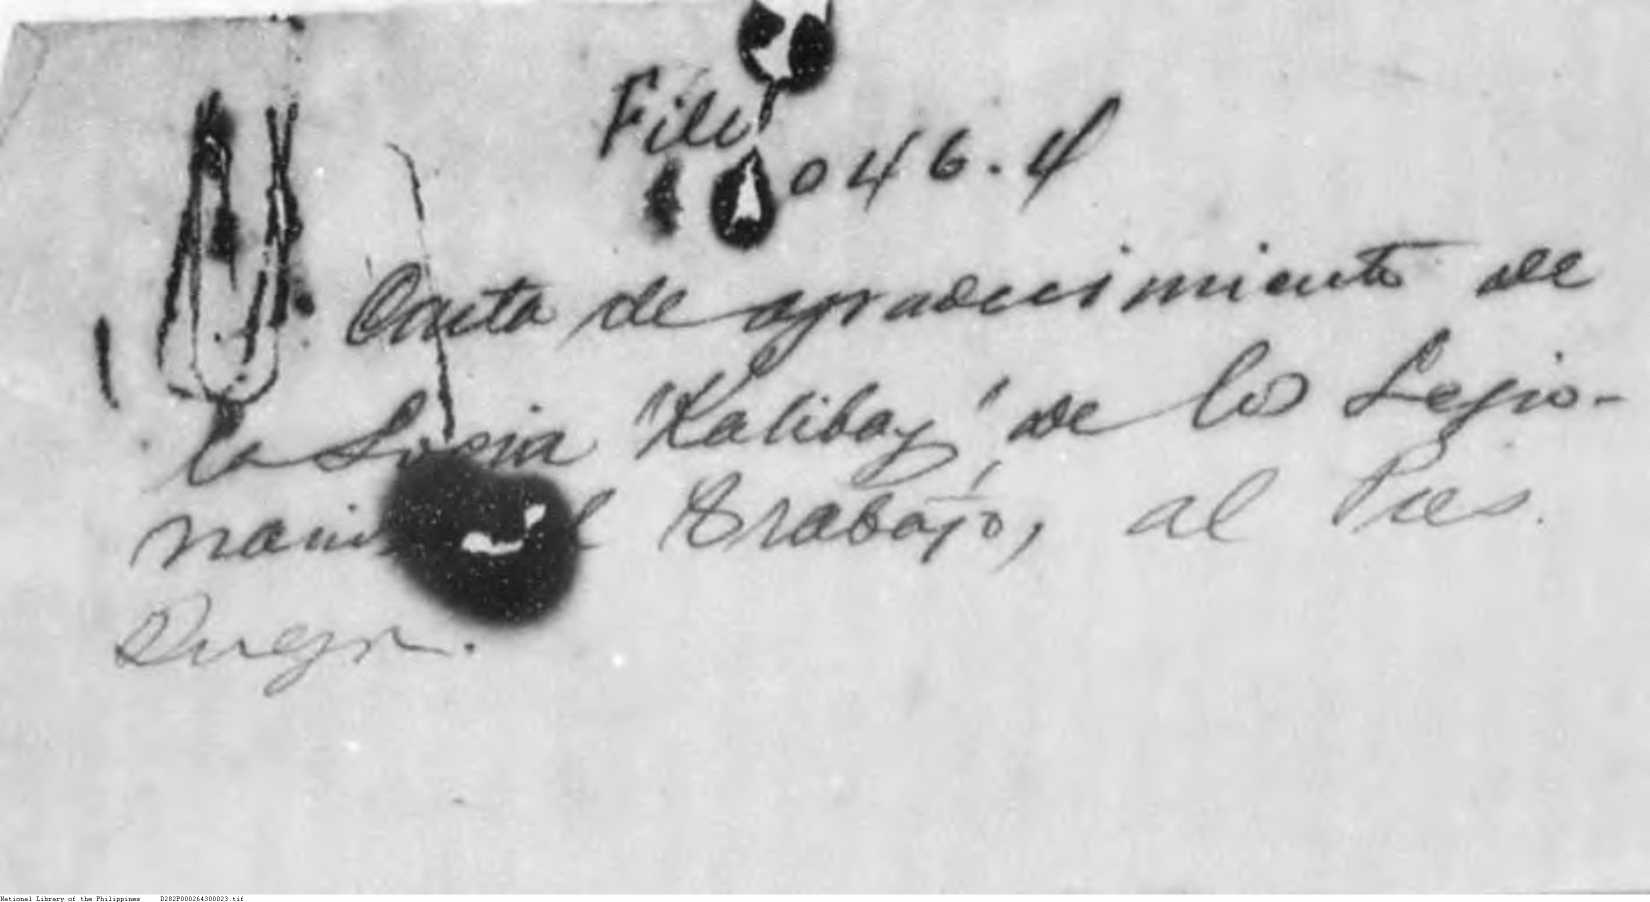 File
046.4
Carta de agradecimiento de
la Logia "Kalibay" de los Legio-
narios del Trabajo, al Pres.
Quezon.
National Library of the Philippines D282P000264300023.tif